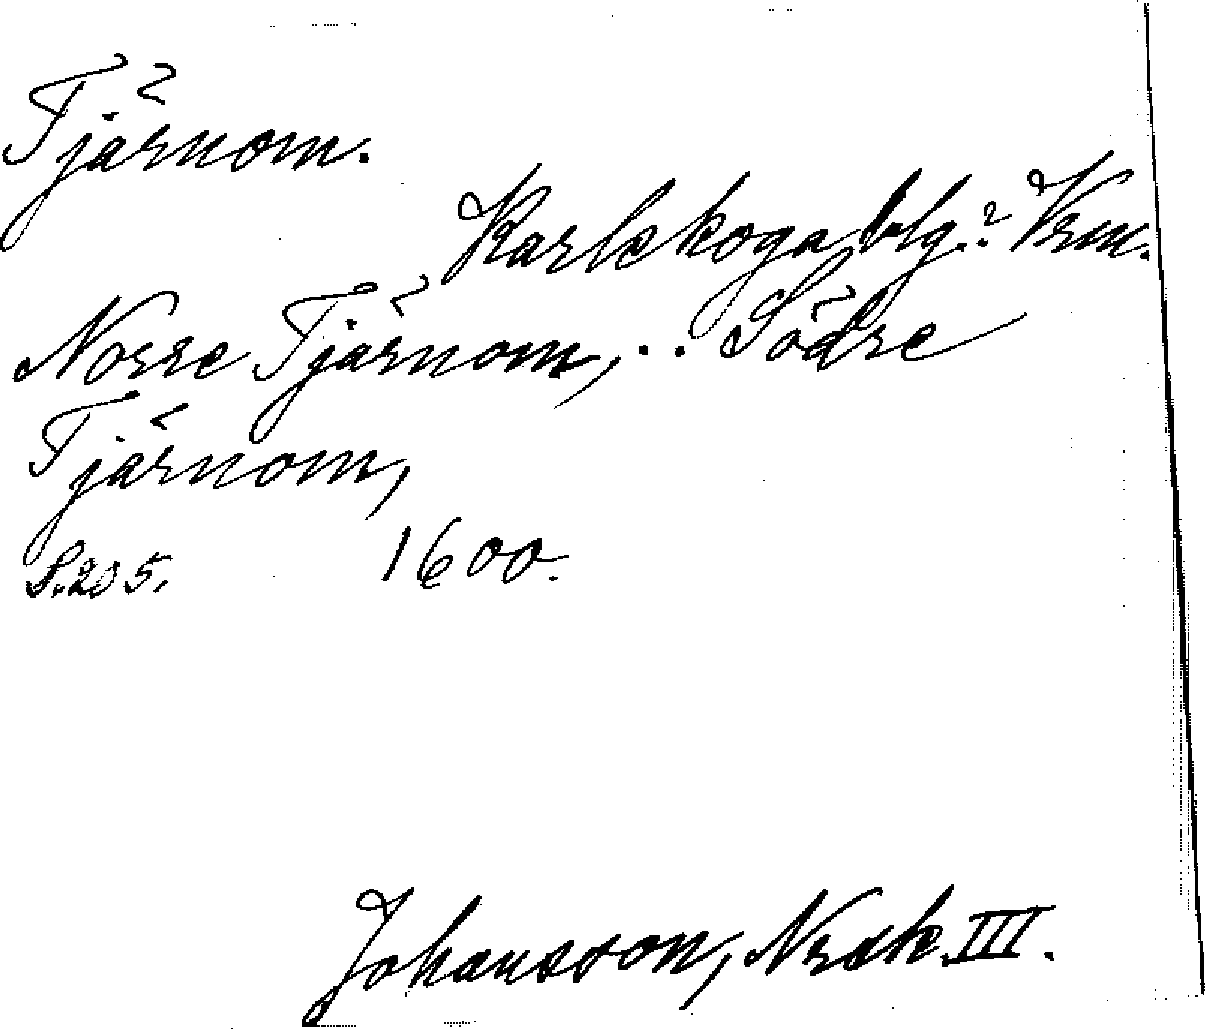 Tjärnom.
Karlskoga, blg.? Vrm.
Norre Tjärnom, .. Södre
Tjärnom,
S. 205. 1600.
Johansson, Nrsk. III.